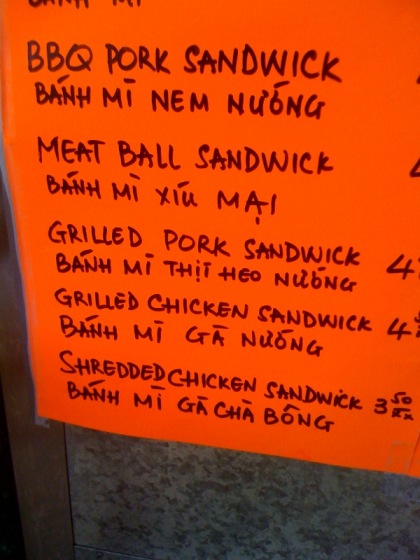 BÁNH MÌ
BBQ PORK SANDWICK
BÁNH MÌ NEM NƯỚNG
MEAT BALL SANDWICK
BÁNH MÌ XÍU MẠI
GRILLED PORK SANDWICK 4
BÁNH MÌ THỊT HEO NƯỚNG
GRILLED CHICKEN SANDWICK 4
BÁNH MÌ GÀ NƯỚNG
SHREDDED CHICKEN SANDWICK 3 50
BÁNH MÌ GÀ CHÀ BÔNG